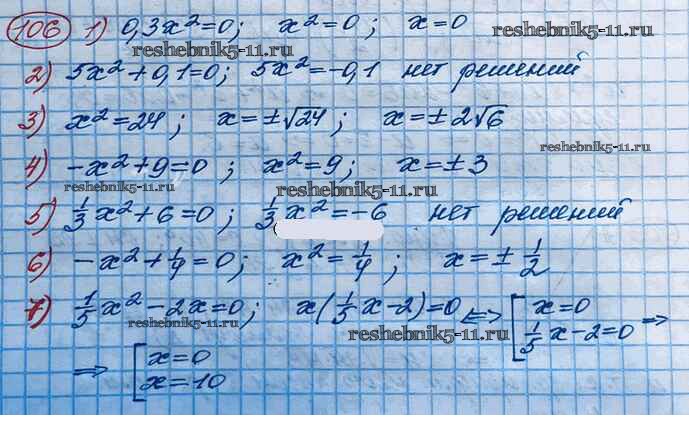 106 1) 0,3x²=0; x²=0; x=0
reshebnik5-11.ru reshebnik5-11.ru
2) 5x²+0,1=0; 5x²=-0,1 нет решений
3) x²=24; x=±√24; x=±2√6
reshebnik5-11.ru
4) -x²+9=0; x²=9; x=±3
reshebnik5-11.ru reshebnik5-11.ru
5) 1/3x²+6=0; 1/3x²=-6 нет решений
6) -x²+1/4=0; x²=1/4; x=±1/2
7) 1/5x²-2x=0; x(1/5x-2)=0 ⇔ [x=0
1/5x-2=0 ⇒
reshebnik5-11.ru reshebnik5-11.ru
⇒ [x=0
x=10
reshebnik5-11.ru